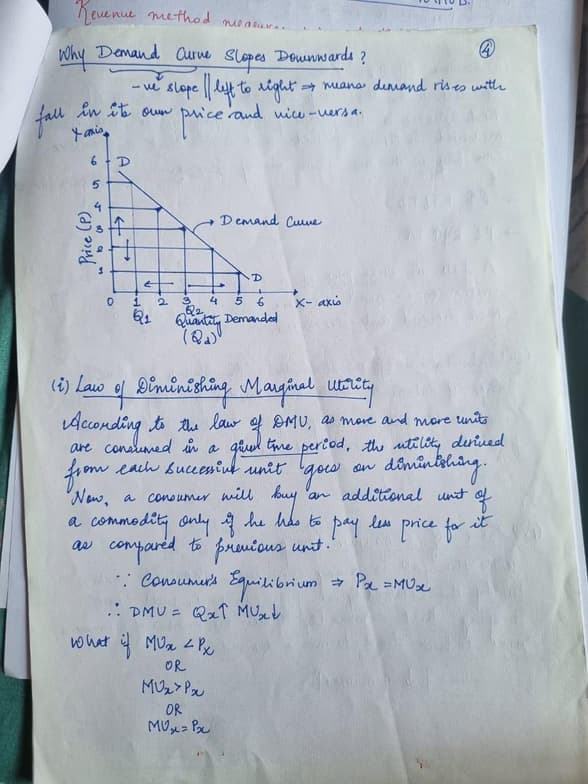 Revenue method
Why Demand Curve Slopes Downwards?
④
-ve slope || left to right ⇒ means demand rises with
fall in its own price and vice-versa.
Y axis
6 D
5
4
3
2
1
Price (P)
→ Demand Curve
D
0 1 2 3 4 5 6 X-axis
Q1 Q2
Quantity Demanded
(Qd)
(i) Law of Diminishing Marginal Utility
According to the law of DMU, as more and more units
are consumed in a given time period, the utility derived
from each successive unit goes on diminishing.
Now, a consumer will buy an additional unit of
a commodity only if he has to pay less price for it
as compared to previous unit.
∵ Consumer's Equilibrium ⇒ Px = MUx
∴ DMU = Qx↑ MUx↓
What if MUx < Px
OR
MUx > Px
OR
MUx = Px